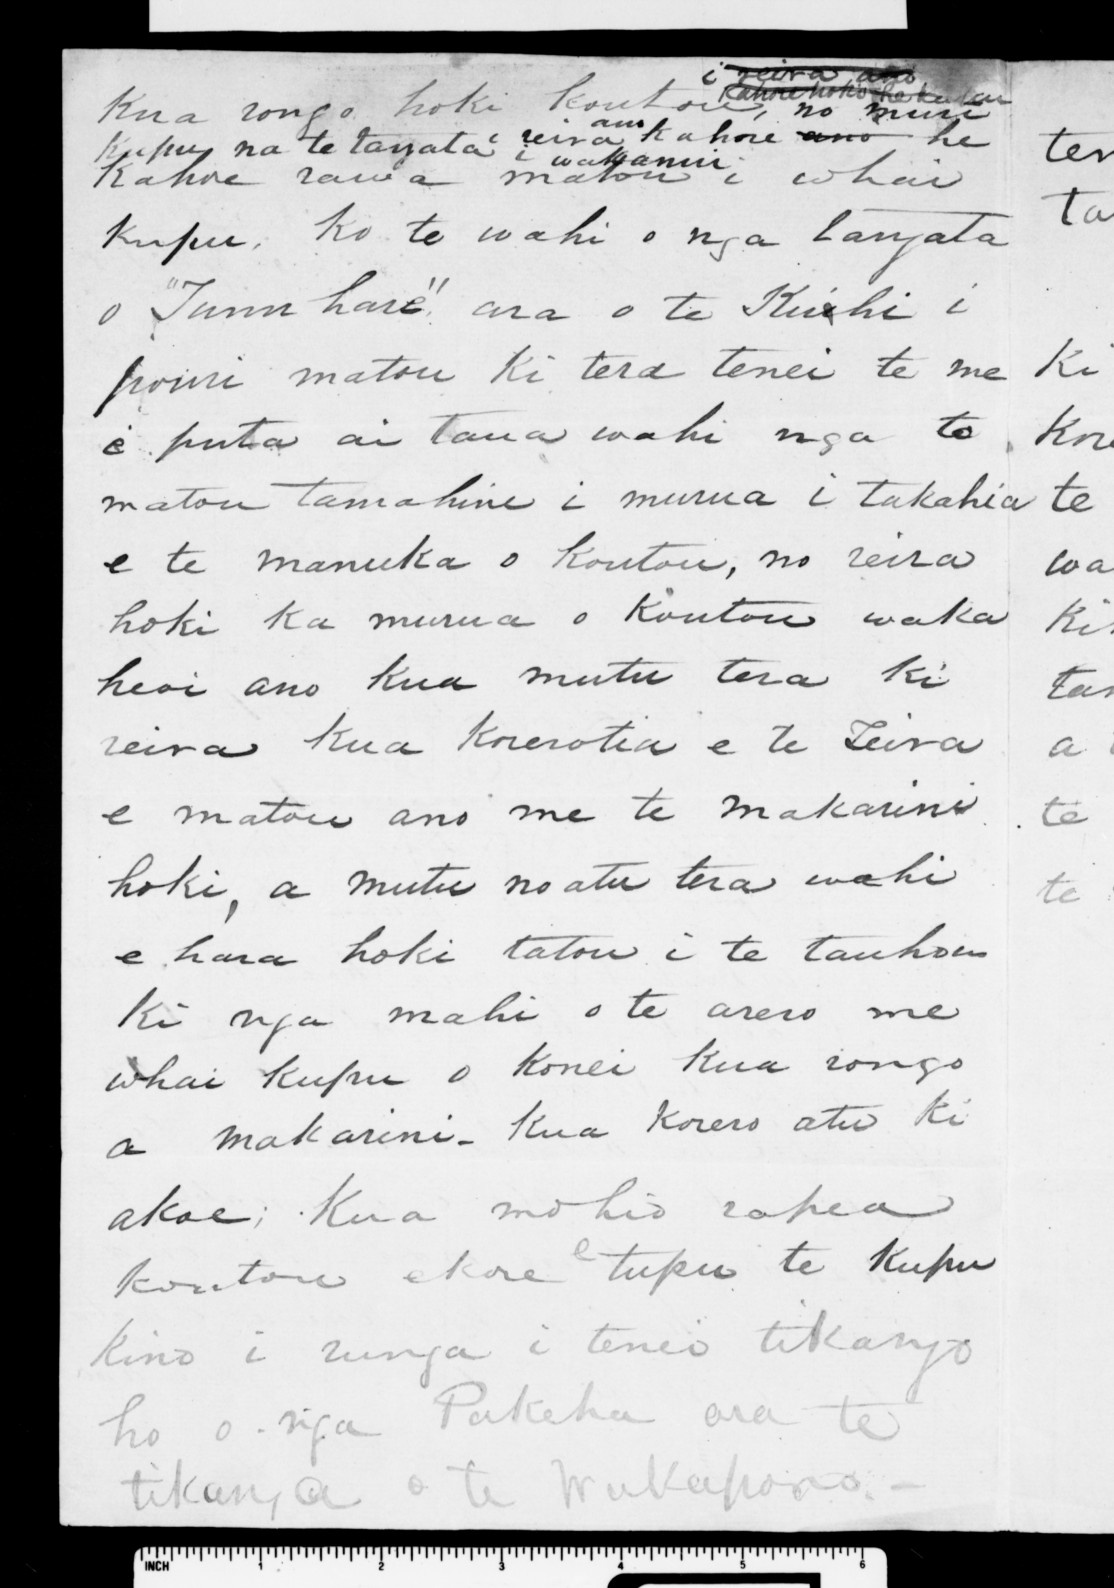 i reira ano
Kahore hoki he kupu
Kua rongo hoki koutou, no muri
ano
Kupu na te tangata i reira kahore ano he
i wakanui
Kahore rawa matou i whai
kupu. Ko te wahi o nga tangata
o "Tunn hare" ara o te Kuihi i
pouri matou ki tera tenei te me
i puta ai taua wahi nga to
matou tamahine i murua i takahia
e te manuka o koutou, no reira
hoki ka murua o koutou waka
heoi ano kua mutu tera ki
reira kua korerotia e te Teira
e matou ano me te Makarini
hoki, a mutu noatu tera wahi
e hara hoki tatou i te tauhou
ki nga mahi o te arero me
whai kupu o konei kua rongo
a Makarini - Kua korero atu ki
akoe; Kua mohio rapea
koutou ekore e tupu te kupu
kino i runga i tenei tikanga
ho o nga Pakeha ara te
tikanga o te Wakapono. -
ter
ta
Ki
Kore
te
wa
Ki
tan
a
te
te